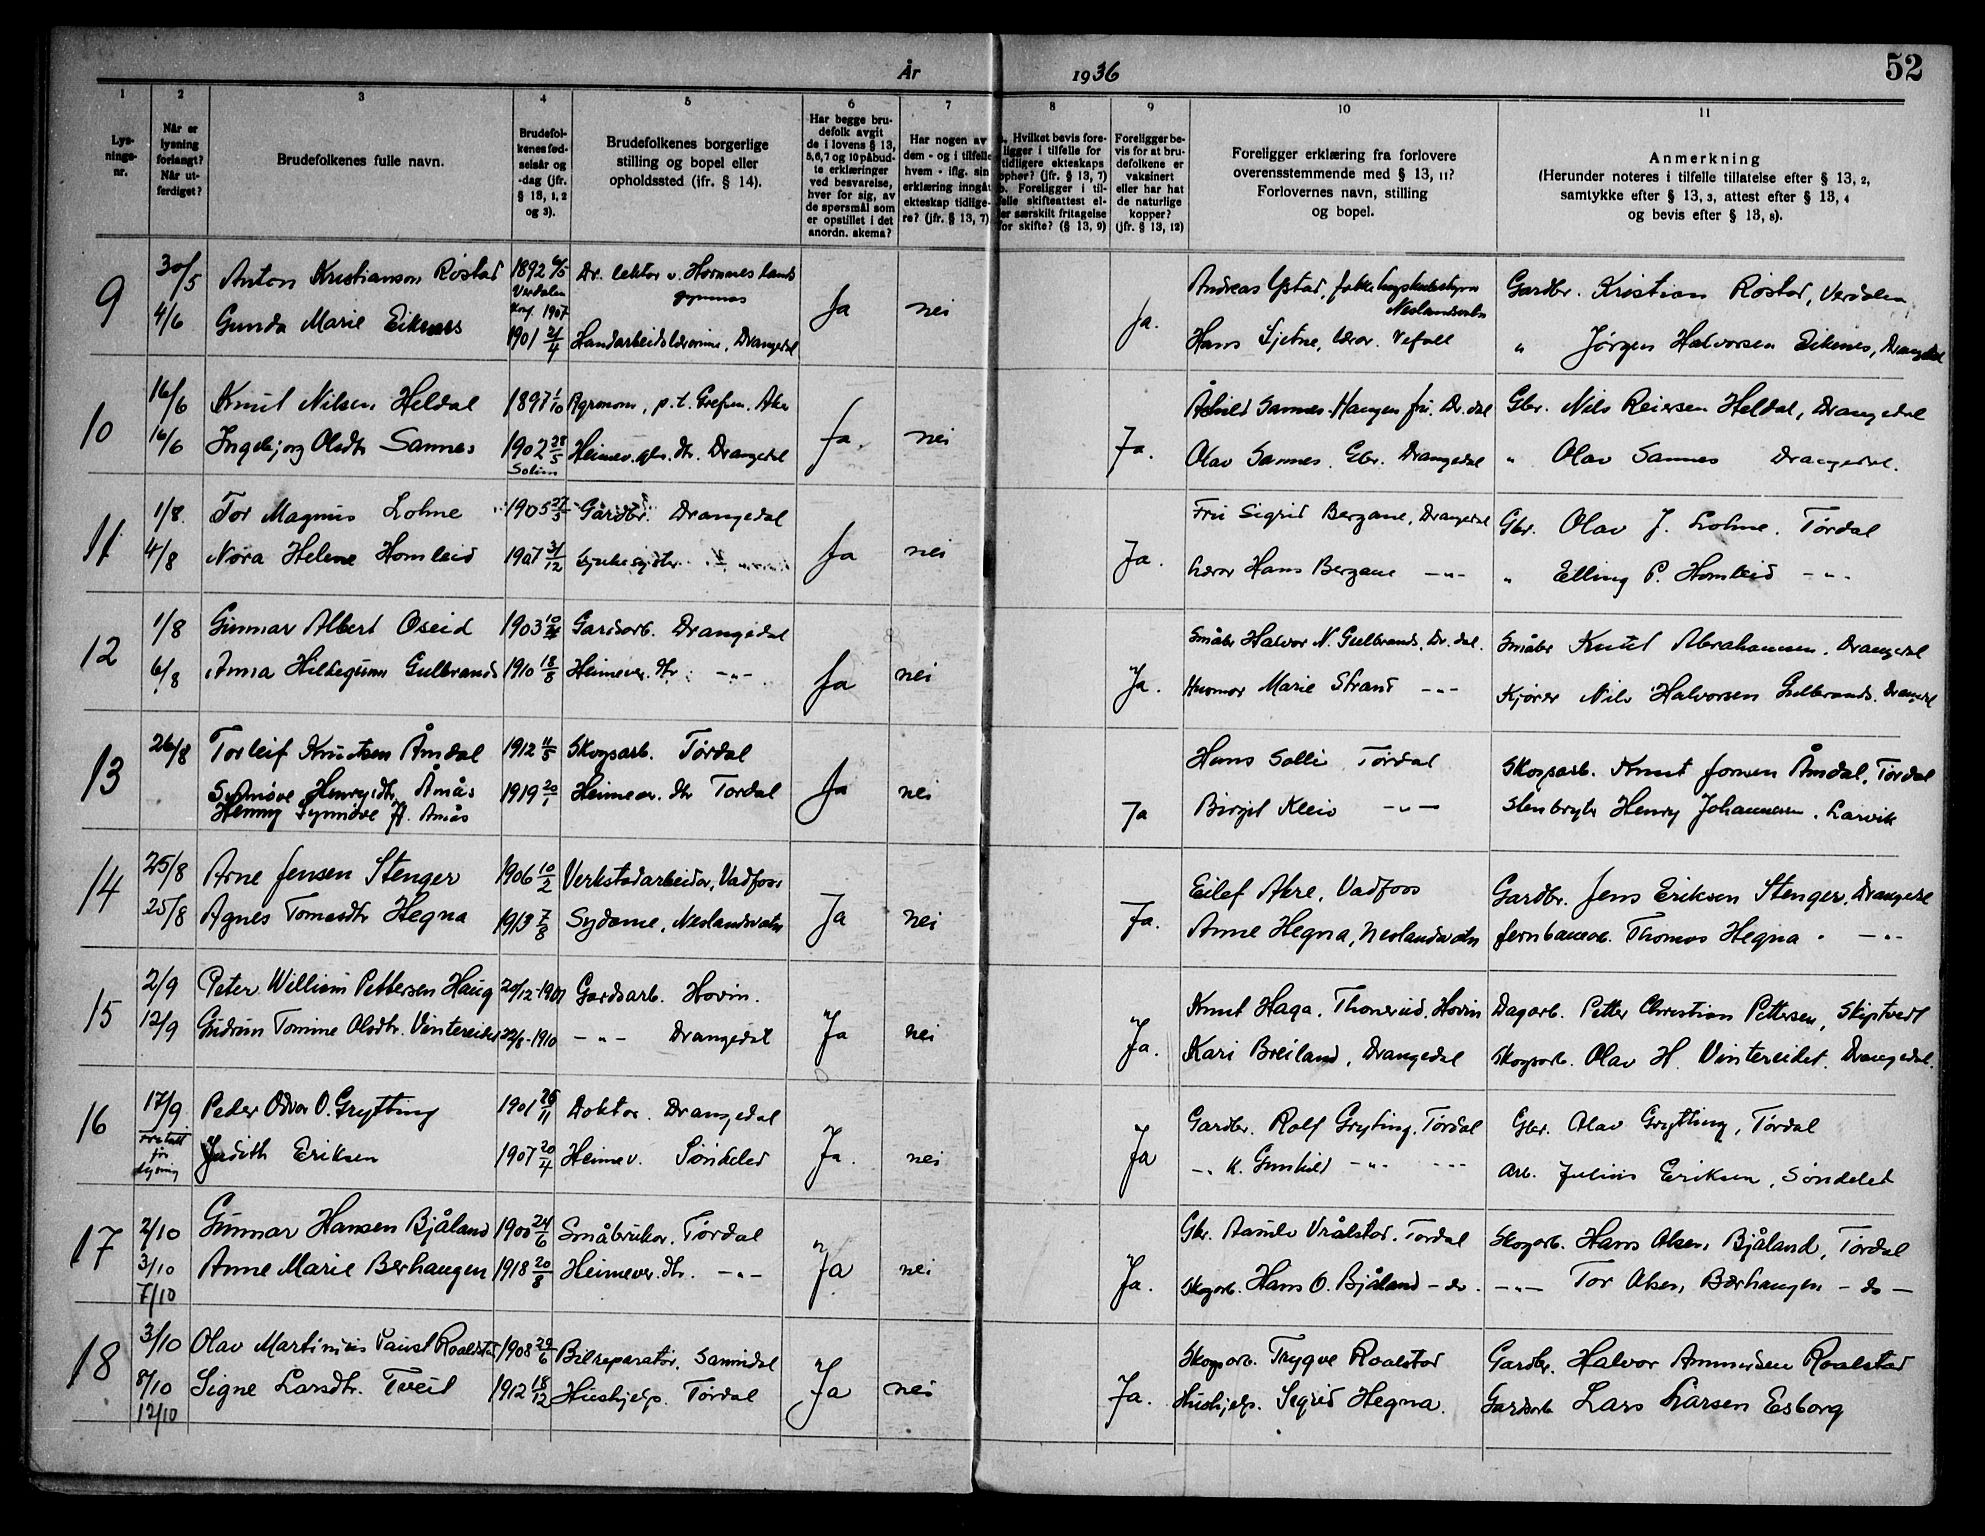 År 1936
52
1 2 3 4 5 6 7 8 9 10 11
Lys-
nings-
nr.
Når er
lysning
forlangt?
Når ut-
ferdiget?
Brudefolkenes fulle navn.
Brudefol-
kenes fød-
selsår og
-dag (jfr.
§ 13, 1, 2
og 3).
Brudefolkenes borgerlige
stilling og bopel eller
opholdssted (ifr. § 14).
Har begge bru-
defolk avgit
de i lovens § 13,
5,6,7 og 10 påbud-
te erklæringer
ved besvarelse,
hver for sig, av
de spørsmål som
er opstillet i det
anordn. skema?
Har nogen av
dem - og i tilfelle
hvem - iflg. sin
erklæring inngått
ekteskap tidlige-
re? (jfr. § 13, 7)
a. Hvilket bevis fore-
ligger i tilfelle for
tidligere ekteskaps
ophør? (jfr. § 13, 7)
b. Foreligger i til-
felle skifteattest el-
ler særskilt fritagelse
for skifte? (§ 13, 9)
Foreligger be-
vis for at bru-
defolkene er
vaksinert
eller har hat
de naturlige
kopper?
(jfr. § 13, 12)
Foreligger erklæring fra forlovere
overensstemmende med § 13, 11?
Forlovernes navn, stilling
og bopel.
Anmerkning
(Herunder noteres i tilfelle tillatelse efter § 13, 2,
samtykke efter § 13, 3, attest efter § 13, 4
og bevis efter § 13, 8).
9 30/5 Anton Kristianson Røstad 1892 6/5 Dr. lektor v. Hornnes lands
Verdalen gymnas
Konf. 1907
4/6 Gunda Marie Eikenes 1901 21/4 Handarbeidslærerinne, Drangedal Ja nei Ja.
Andreas Ystad, Neslandsvatn
Hans Sjetne, lærer. Gardbr. Kristian Røstad, Verdalen
" Jørgen Halvorsen Eikenes, Drangedal
10 16/6 Knut Nilsen Heldal 1897 1/10 Agronom, p.t. Grefsen. Aker
16/6 Ingebjørg Olsdtr Sannes 1902 28/5 Heimev. gbr. dtr. Drangedal Ja. nei Ja.
Sannes-Haugen fru. Dr.dal Gbr. Nils Reiersen Heldal, Drangedal
Olav Sannes. Gbr. Drangedal " Olav Sannes Drangedal.
11 1/8. Tor Magnus Lohne 1905 27/5 Gardbr. Drangedal Fru Sigrid Bergane, Drangedal Gbr. Olav J. Lohne. Tørdal
4/8 Nora Helene Homleid 1907 31/12 Ja nei Ja. Lærer Hans Bergane -"- " Elling P. Homleid -"-
12 1/8 Gunnar Albert Oseid 1903 Gardsarb. Drangedal Småbr Halvor N. Gulbrands. Dr.dal. Småbr Knut Abrahamsen. Drangedal
6/8 Anna Hildegunn Gulbrands 1910 18/8 Heimev. dtr. -"- Ja nei Ja. Marie Strand -"- Kjører Nils Halvorsen Gulbrands. Drangedal
13 26/8 Torleif Knutsen Åmdal 1912 11/5 Skogsarb. Tørdal Hans Solli Tørdal Skogsarb. Knut Jonsen Åmdal, Tørdal
Synnøve Henrysdtr. Åmås 1919 20/1 Heimev. dtr Tørdal Ja nei Ja Birgit Kleiv -"- Stenbryter Henry Johannesen. Larvik
Henny Synnøve H. Åmås
14 25/8 Arne Jensen Stenger 1906 10/2 Verkstadarbeider, Vadfoss Eilef Akre, Vadfoss Gardbr. Jens Eriksen Stenger, Drangedal
25/8 Agnes Tomasdtr Hegna 1913 7/8 Sydame, Neslandsvatn Ja nei Ja. Anne Hegna, Neslandsvatn Jernbanearb. Thomas Hegna -"-
15 2/9 Peter William Pettersen Haug 20/12-1901 Gardsarb. Hovin. Knut Haga. Thonerud. Hovin Dagarb. Petter Christian Pettersen, Skiptvedt
12/9 Gudrun Tomine Olsdtr. Vintereidet 22/8-1910 -"- Drangedal Ja nei Ja. Kari Breiland, Drangedal Skogsarb. Olav H. Vintereidet. Drangedal.
16 17/9 Peder Odvar O. Grytting 1901 26/11 Doktor. Drangedal Gardbr. Rolf Gryting. Tørdal Gbr. Olav Grytting, Tørdal
Fritatt
for
lysning Judith Eriksen 1907 20/4 Heimev. Søndeled Ja. nei Ja -"- k. Gunhild -"- -"- Arb. Julius Eriksen, Søndeled
17 2/10 Gunnar Hansen Bjåland 1900 24/6 Småbruker. Tørdal Gbr. Aanulv Vrålstad. Tørdal Skogarb. Hans Olsen Bjåland, Tørdal
3/10 Anne Marie Berhaugen 1918 20/8 Heimever. dtr. -"- Ja nei Ja. Skogarb. Hans O. Bjåland - do - -"- Tor Olsen Bærhaugen - do -
7/10
18 3/10 Olav Martinius Faust Roalstad 1908 29/6 Bilreparatør. Sannidal Skogsarb. Trygve Roalstad Gardbr. Halvor Ammundsen Roalstad
8/10 Signe Larsdtr. Tveit 1912 18/12 Hushjelp. Tørdal Ja nei Ja. Hushjelp. Sigrid Hegna. Gardsarb Lars Larsen Esborg
12/10